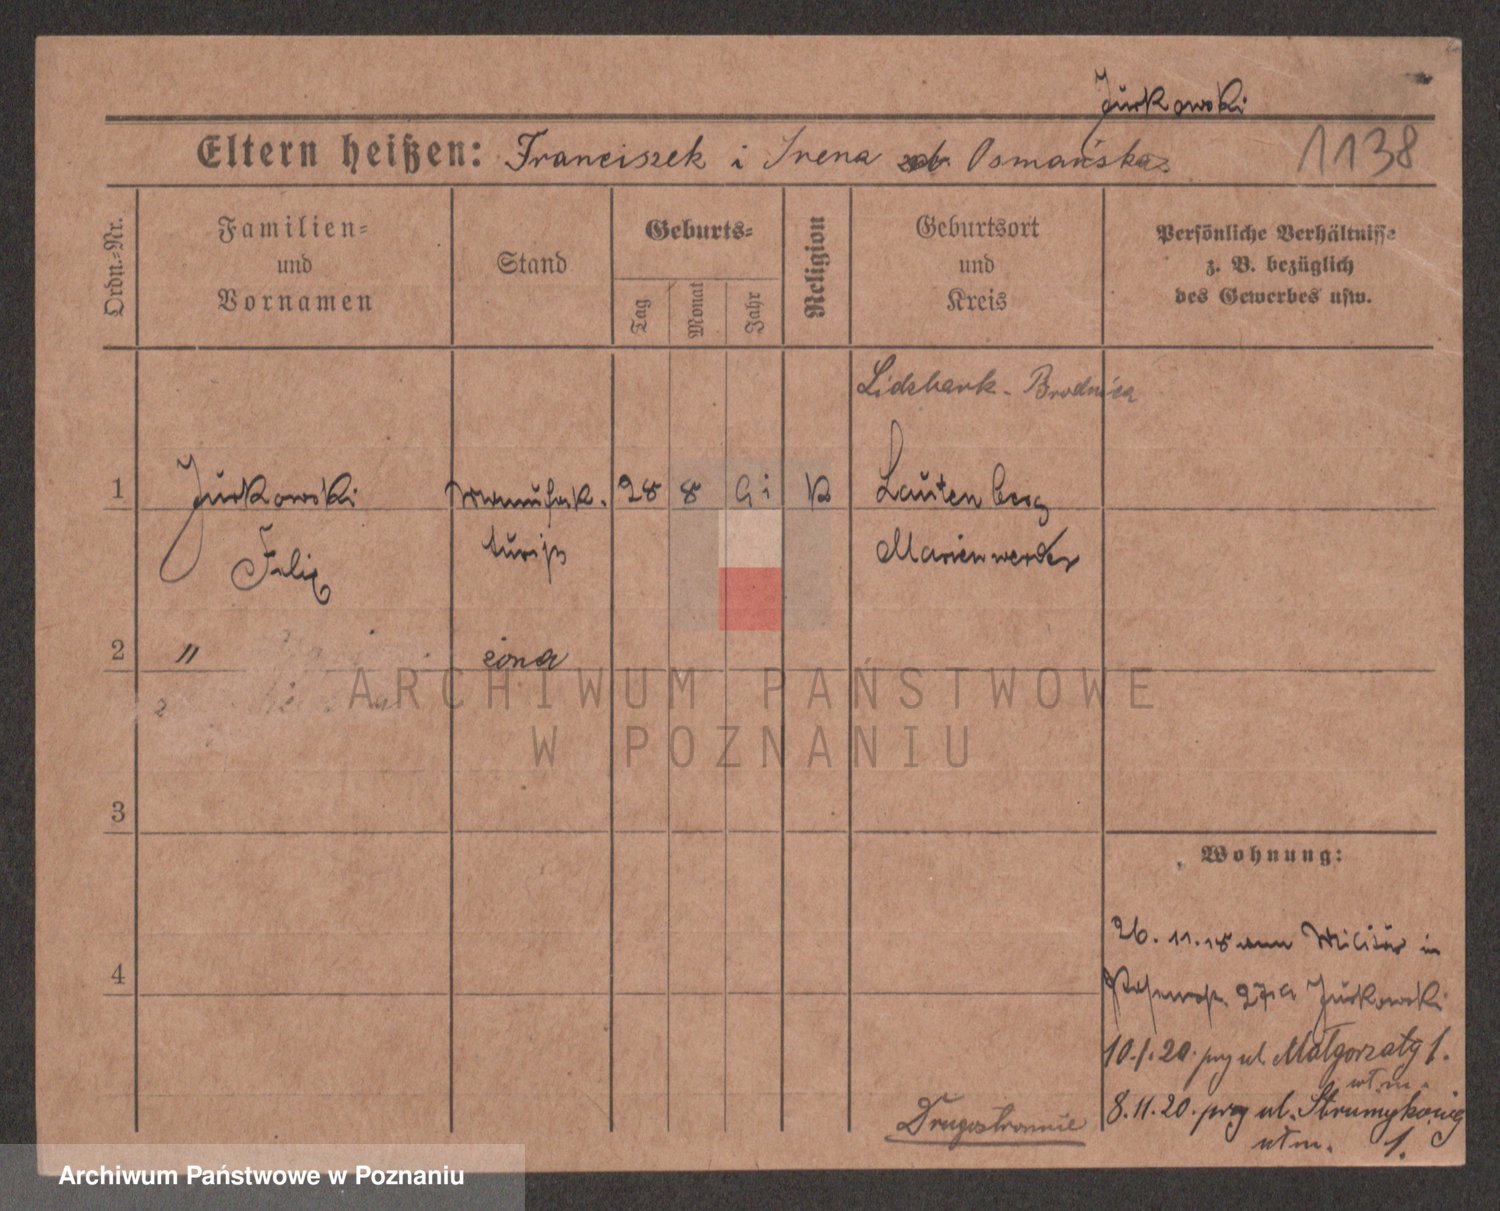 Jurkowski
Eltern heißen: Franciszek i Irena Osmańska
1138
Ordn.-Nr.
Familien-
und
Vornamen
Stand
Geburts-
Tag
Monat
Jahr
Religion
Geburtsort
und
Kreis
Persönliche Verhältnisse
z. B. bezüglich
des Gewerbes usw.
Lidzbark - Brodnica
1 Jurkowski 28 8 91 K Lautenberg
Felix Marienwerder
2 " żona
3
Wohnung:
4
26.11.18 vom Militär in
27 Jurkowski
10.1.20. przy ul. Małgorzaty 1.
wł. m.
8.11.20. przy ul. Strumykowej
wł m. 1.
Drugostronnie
ARCHIWUM PAŃSTWOWE
W POZNANIU
Archiwum Państwowe w Poznaniu